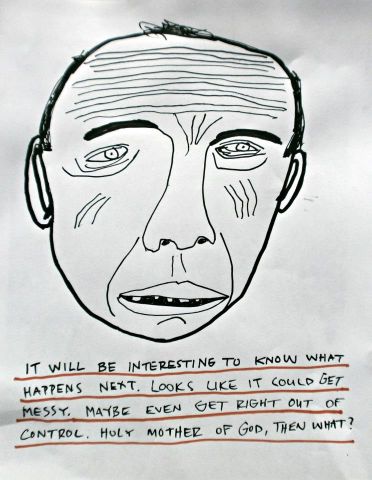 IT WILL BE INTERESTING TO KNOW WHAT
HAPPENS NEXT. LOOKS LIKE IT COULD GET
MESSY. MAYBE EVEN GET RIGHT OUT OF
CONTROL. HOLY MOTHER OF GOD, THEN WHAT?